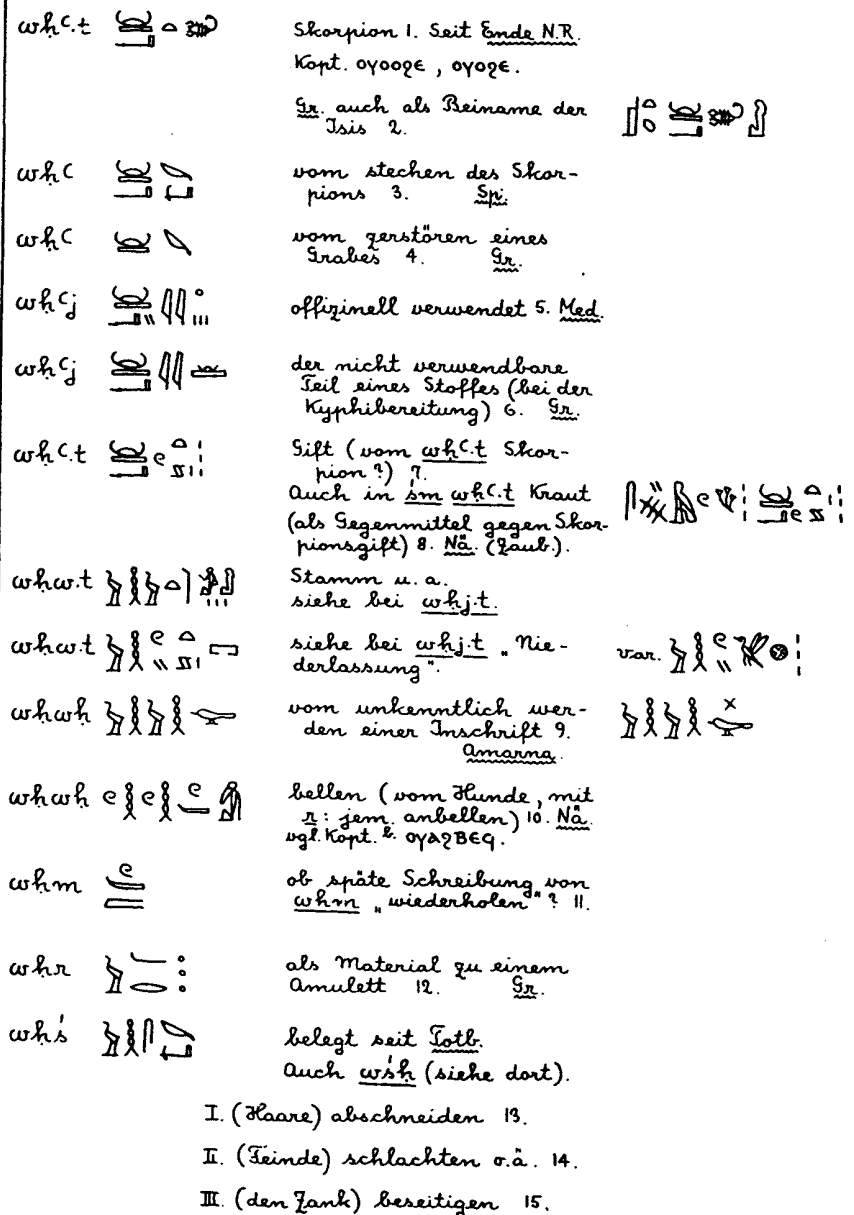 wḥꜥ.t Skorpion 1. Seit Ende N.R.
Kopt. ⲟⲩⲟⲟϩⲉ, ⲟⲩⲟϩⲉ.
Gr. auch als Beiname der
Isis 2.
wḥꜥ vom stechen des Skor-
pions 3. Sp.
wḥꜥ vom zerstören eines
Grabes 4. Gr.
wḥꜥj offizinell verwendet 5. Med.
wḥꜥj der nicht verwendbare
Teil eines Stoffes (bei der
Kyphibereitung) 6. Gr.
wḥꜥ.t Gift (vom wḥꜥ.t Skor-
pion?) 7.
Auch in śm wḥꜥ.t Kraut
(als Gegenmittel gegen Skor-
pionsgift) 8. Nä. (Zaub.).
wḥw.t Stamm u. a.
siehe bei wḥj.t.
wḥw.t siehe bei wḥj.t „Nie- var.
derlassung".
wḥwḥ vom unkenntlich wer-
den einer Inschrift 9.
Amarna.
wḥwḥ bellen (vom Hunde, mit
r: jem. anbellen) 10. Nä.
vgl. Kopt. b. ⲟⲩⲁϩⲃⲉϥ.
wḥm ob späte Schreibung von
wḥm „wiederholen"? 11.
wḥr als Material zu einem
Amulett 12. Gr.
wḥś belegt seit Totb.
Auch wśḥ (siehe dort).
I. (Haare) abschneiden 13.
II. (Feinde) schlachten o.ä. 14.
III. (den Zank) beseitigen 15.